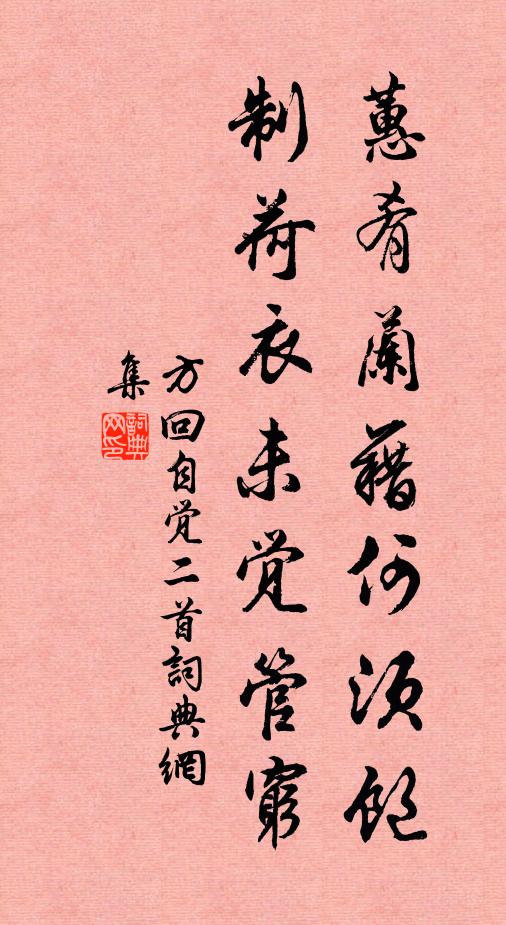 蕙肴蘭藉何須飽
制荷衣未覚管窮
方回自覚二首詞典網
集
詞典
网印